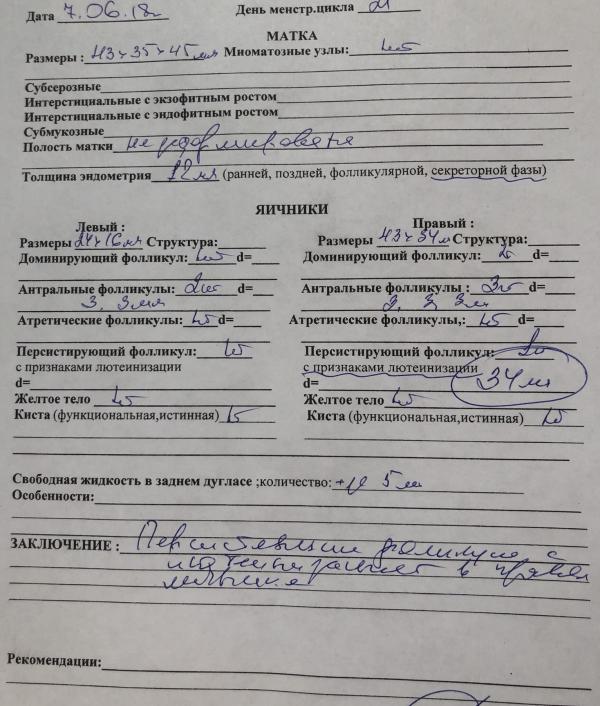 Дата 7.06.18г День менстр.цикла 21
МАТКА
Размеры : 43×35×45 мм Миоматозные узлы: нет
Субсерозные
Интерстициальные с экзофитным ростом
Интерстициальные с эндофитным ростом
Субмукозные
Полость матки не деформирована
Толщина эндометрия 12мм (ранней, поздней, фолликулярной, секреторной фазы)
ЯИЧНИКИ
Левый : Правый :
Размеры 24×16мм Структура: Размеры 43×34м Структура:
Доминирующий фолликул: нет d= Доминирующий фолликул: d=
Антральные фолликулы: d= Антральные фолликулы : d=
3, 3мм 3, 3, 3м
Атретические фолликулы: нет d= Атретические фолликулы,: нет d=
Персистирующий фолликул: нет Персистирующий фолликул:
с признаками лютеинизации с признаками лютеинизации
d= d= 34мм
Желтое тело нет Желтое тело нет
Киста (функциональная,истинная) нет Киста (функциональная,истинная) нет
Свободная жидкость в заднем дугласе ;количество: 5мл
Особенности:
ЗАКЛЮЧЕНИЕ : Персистенция фолликула с
лютеинизацией в правом
яичнике
Рекомендации: